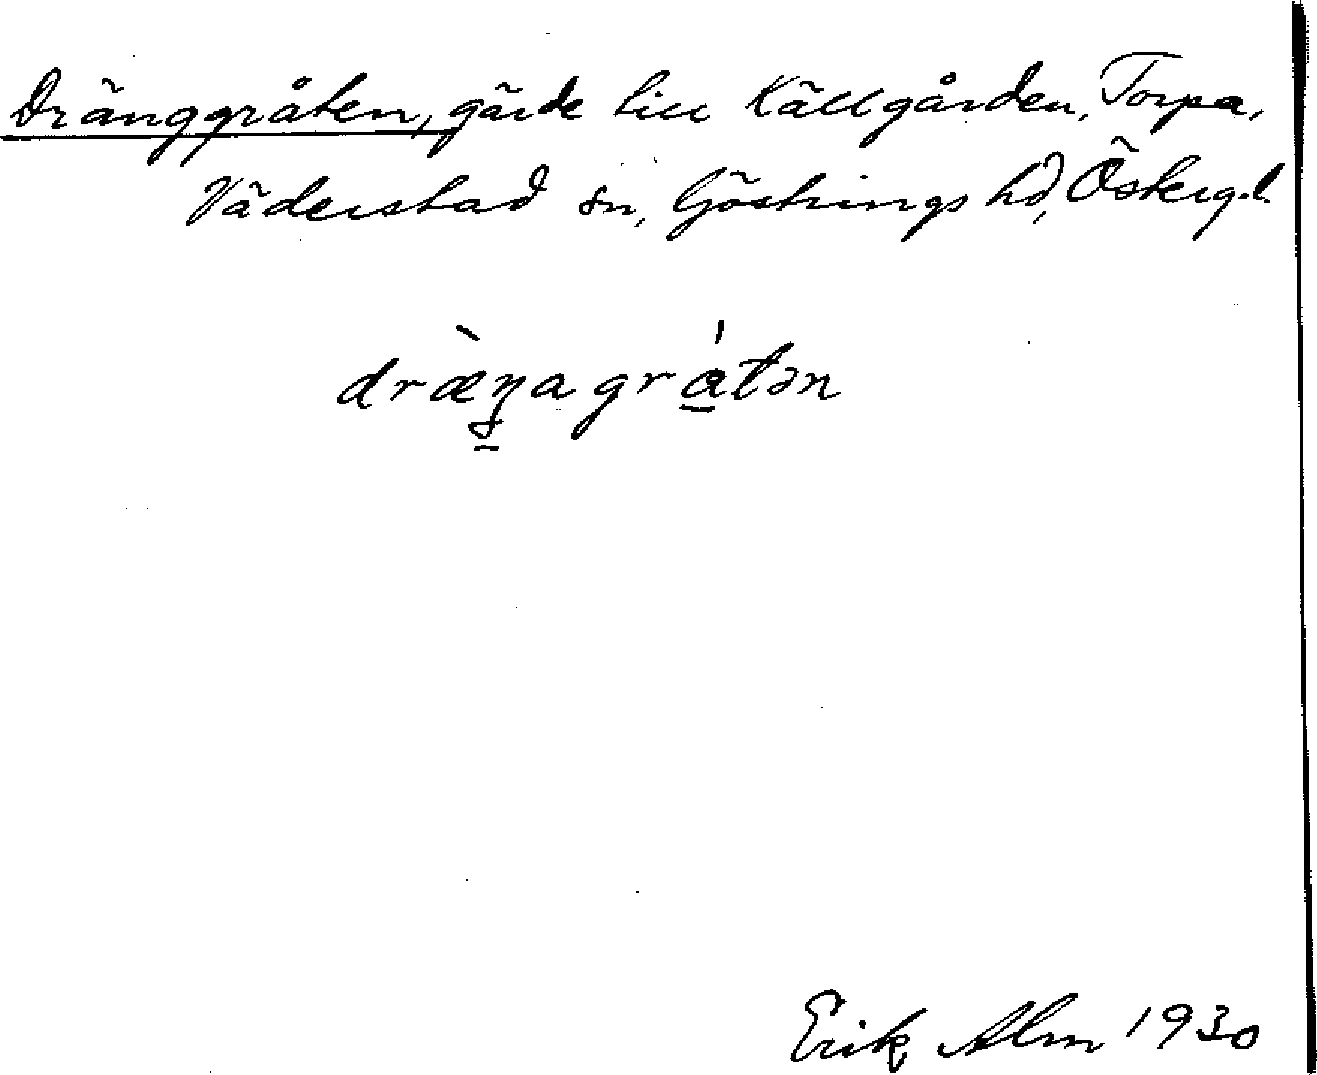 Dränggråten, gärde till Källgården, Torpa,
Väderstad sn, Göstrings hd, Östergl.
dræ̀ŋagrátən
Erik Alm 1930